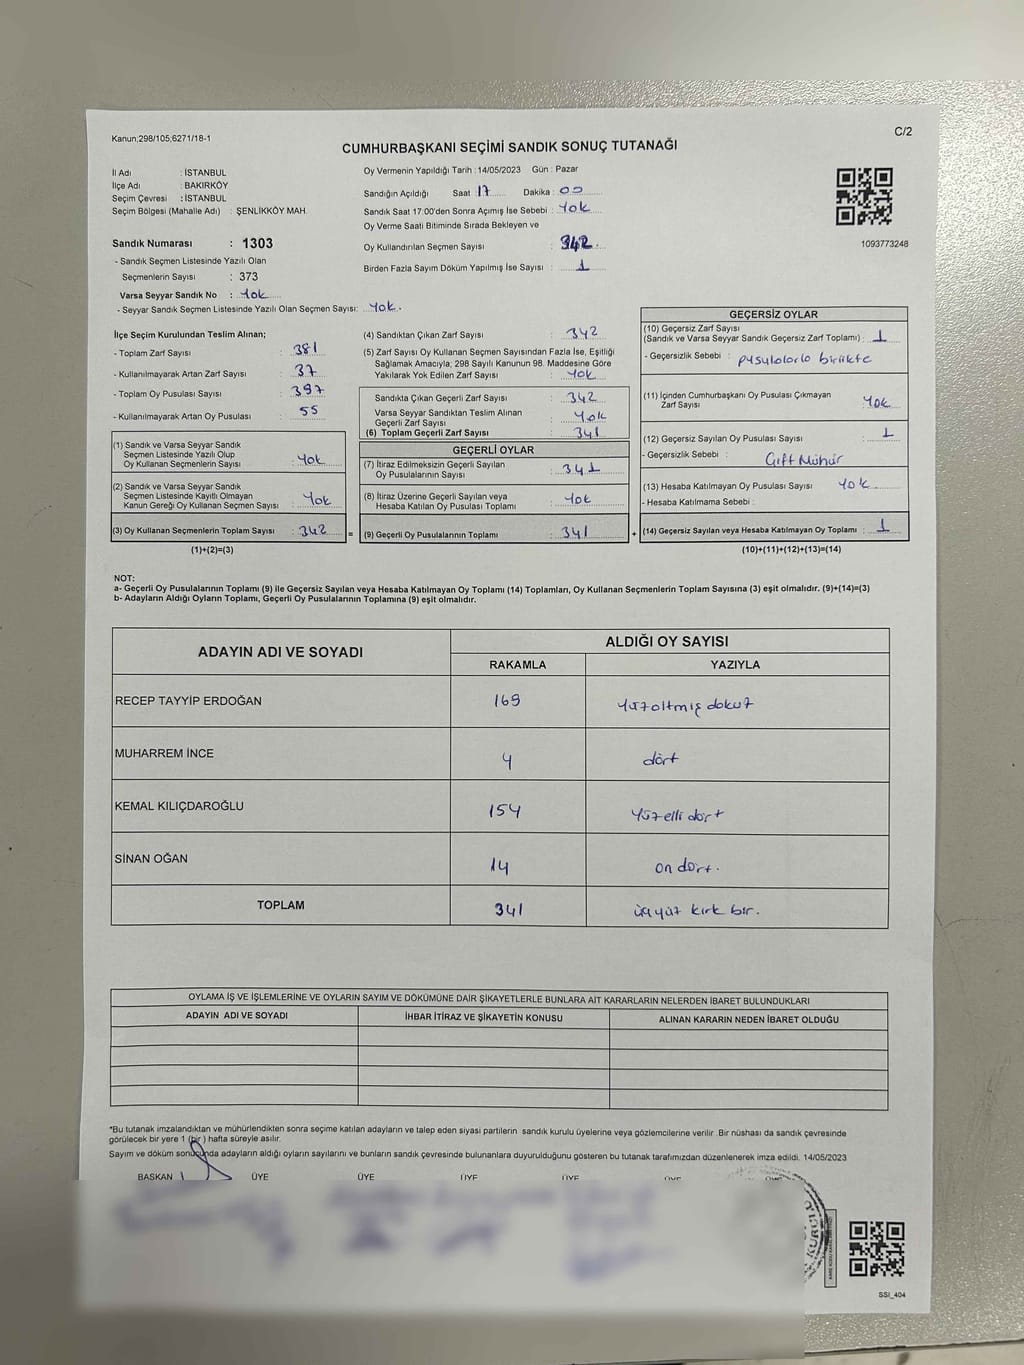 Kanun;298/105;6271/18-1
C/2
CUMHURBAŞKANI SEÇİMİ SANDIK SONUÇ TUTANAĞI
İl Adı : İSTANBUL
İlçe Adı : BAKIRKÖY
Seçim Çevresi : İSTANBUL
Seçim Bölgesi (Mahalle Adı) : ŞENLİKKÖY MAH.
Sandık Numarası : 1303
- Sandık Seçmen Listesinde Yazılı Olan
Seçmenlerin Sayısı : 373
Varsa Seyyar Sandık No : Yok
- Seyyar Sandık Seçmen Listesinde Yazılı Olan Seçmen Sayısı: Yok.
Oy Vermenin Yapıldığı Tarih : 14/05/2023 Gün : Pazar
Sandığın Açıldığı Saat : 17 Dakika : 00
Sandık Saat 17:00'den Sonra Açımış İse Sebebi : Yok
Oy Verme Saati Bitiminde Sırada Bekleyen ve
Oy Kullandırılan Seçmen Sayısı : 342.
Birden Fazla Sayım Döküm Yapılmış İse Sayısı : 1
1093773248
İlçe Seçim Kurulundan Teslim Alınan;
- Toplam Zarf Sayısı : 381
- Kullanılmayarak Artan Zarf Sayısı : 37
- Toplam Oy Pusulası Sayısı : 397
- Kullanılmayarak Artan Oy Pusulası : 55
(1) Sandık ve Varsa Seyyar Sandık
Seçmen Listesinde Yazılı Olup
Oy Kullanan Seçmenlerin Sayısı : Yok
(2) Sandık ve Varsa Seyyar Sandık
Seçmen Listesinde Kayıtlı Olmayan
Kanun Gereği Oy Kullanan Seçmen Sayısı : Yok
(3) Oy Kullanan Seçmenlerin Toplam Sayısı : 342 =
(1)+(2)=(3)
(4) Sandıktan Çıkan Zarf Sayısı : 342
(5) Zarf Sayısı Oy Kullanan Seçmen Sayısından Fazla İse, Eşitliği
Sağlamak Amacıyla; 298 Sayılı Kanunun 98. Maddesine Göre
Yakılarak Yok Edilen Zarf Sayısı : Yok
Sandıkta Çıkan Geçerli Zarf Sayısı : 342
Varsa Seyyar Sandıktan Teslim Alınan
Geçerli Zarf Sayısı : Yok
(6) Toplam Geçerli Zarf Sayısı : 341
GEÇERLİ OYLAR
(7) İtiraz Edilmeksizin Geçerli Sayılan
Oy Pusulalarının Sayısı : 341
(8) İtiraz Üzerine Geçerli Sayılan veya
Hesaba Katılan Oy Pusulası Toplamı : Yok
(9) Geçerli Oy Pusulalarının Toplamı : 341 +
GEÇERSİZ OYLAR
(10) Geçersiz Zarf Sayısı
(Sandık ve Varsa Seyyar Sandık Geçersiz Zarf Toplamı) : 1
- Geçersizlik Sebebi : pusulalarla birlikte
(11) İçinden Cumhurbaşkanı Oy Pusulası Çıkmayan
Zarf Sayısı : Yok
(12) Geçersiz Sayılan Oy Pusulası Sayısı : 1
- Geçersizlik Sebebi : Çift Mühür
(13) Hesaba Katılmayan Oy Pusulası Sayısı : Yok
- Hesaba Katılmama Sebebi :
(14) Geçersiz Sayılan veya Hesaba Katılmayan Oy Toplamı : 1
(10)+(11)+(12)+(13)=(14)
NOT:
a- Geçerli Oy Pusulalarının Toplamı (9) ile Geçersiz Sayılan veya Hesaba Katılmayan Oy Toplamı (14) Toplamları, Oy Kullanan Seçmenlerin Toplam Sayısına (3) eşit olmalıdır. (9)+(14)=(3)
b- Adayların Aldığı Oyların Toplamı, Geçerli Oy Pusulalarının Toplamına (9) eşit olmalıdır.
ADAYIN ADI VE SOYADI
ALDIĞI OY SAYISI
RAKAMLA YAZIYLA
RECEP TAYYİP ERDOĞAN 169 yüzaltmış dokuz
MUHARREM İNCE 4 dört
KEMAL KILIÇDAROĞLU 154 yüzelli dört
SİNAN OĞAN 14 on dört.
TOPLAM 341 üçyüz kırk bir.
OYLAMA İŞ VE İŞLEMLERİNE VE OYLARIN SAYIM VE DÖKÜMÜNE DAİR ŞİKAYETLERLE BUNLARA AİT KARARLARIN NELERDEN İBARET BULUNDUKLARI
ADAYIN ADI VE SOYADI İHBAR İTİRAZ VE ŞİKAYETİN KONUSU ALINAN KARARIN NEDEN İBARET OLDUĞU
*Bu tutanak imzalandıktan ve mühürlendikten sonra seçime katılan adayların ve talep eden siyasi partilerin sandık kurulu üyelerine veya gözlemcilerine verilir .Bir nüshası da sandık çevresinde
görülecek bir yere 1 (bir ) hafta süreyle asılır.
Sayım ve döküm sonucunda adayların aldığı oyların sayılarını ve bunların sandık çevresinde bulunanlara duyurulduğunu gösteren bu tutanak tarafımızdan düzenlenerek imza edildi. 14/05/2023
BAŞKAN ÜYE ÜYE ÜYE ÜYE ÜYE
KURULU
SSI_404